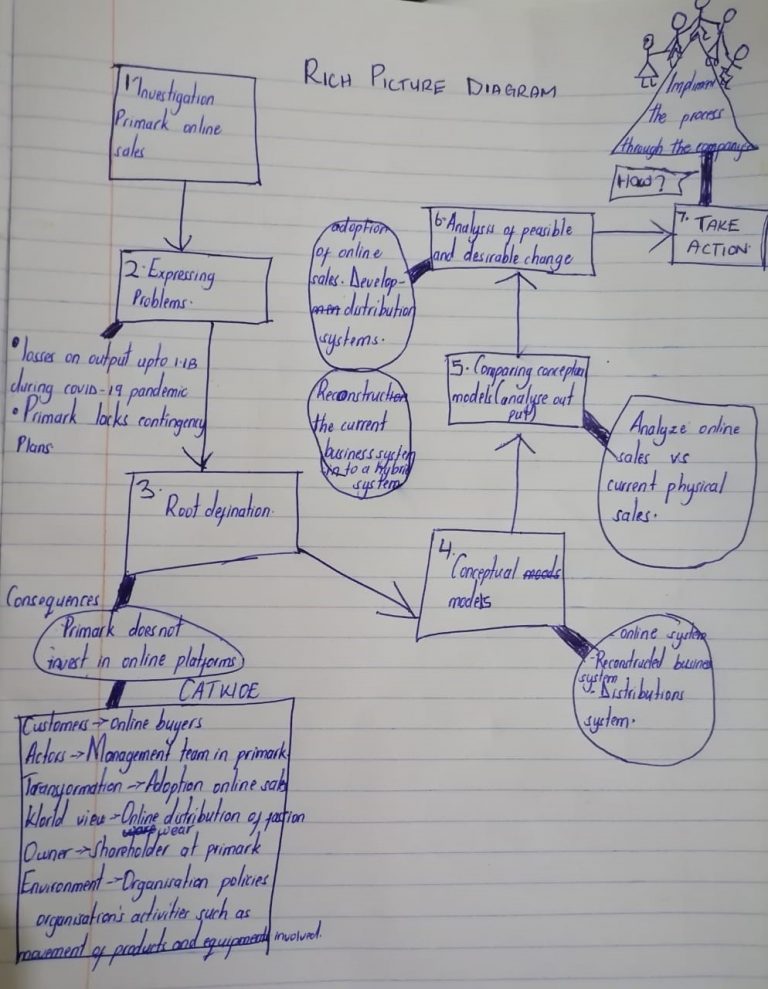 RICH PICTURE DIAGRAM
1. Investigation
Primark online
sales
2. Expressing
Problems.
• losses on output upto 1.1B
during covid-19 pandemic
• Primark lacks contingency
Plans
3.
Root desination.
Consequences
Primark does not
invest in online platforms
CATWOE
Customers → online buyers
Actors → Management team in primark
Transformation → Adoption online sale
World view → Online distribution of fastion
wear
Owner → Shoreholder at primark
Environment → Organisation policies
organisation's activities such as
movement of products and equipments involved.
4.
Conceptual moods
models
- online system
- Reconstructed business
system
- Distributions
system.
5. Comparing conceptual
models (analyse out
put)
Analyze online
sales vs
current physical
sales.
6. Analysis of peasible
and desirable change
adoption
of online
sales. Develop-
men distribution
systems.
Reconstruction
the current
business system
in to a hybrid
system
7. TAKE
ACTION.
How?
Impliment
the process
through the company